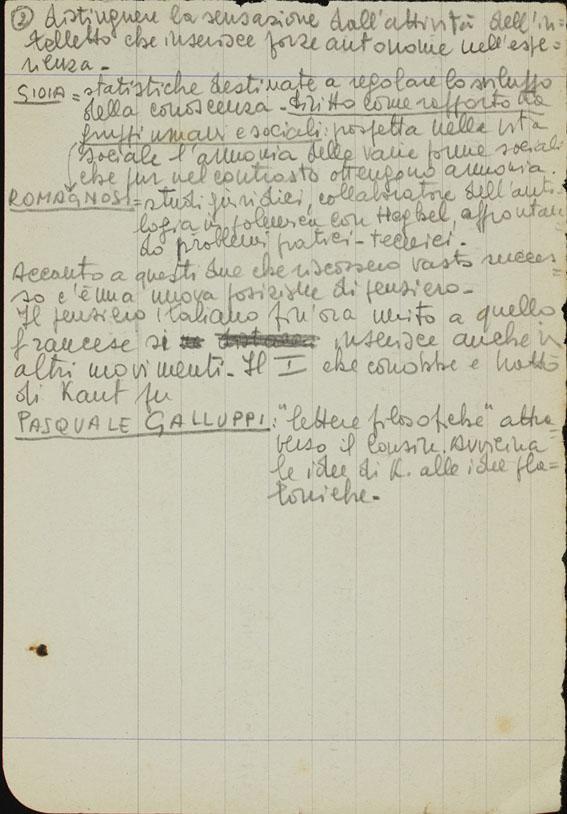 ② distinguere la sensazione dall'attività dell'in=
telletto che inserisce forze autonome nell'espe-
rienza -
GIOIA = statistiche destinate a regolare lo sviluppo
della conoscenza - diritto come rapporto tra
gruppi umani e sociali: prospetta nella vita
sociale l'armonia delle varie forme sociali
che pur nel contrasto ottengono armonia.
ROMAGNOSI = studi giuridici, collaboratore dell'anto
logia in polemica con Heghel, affrontan
do problemi pratici - tecnici.
Accanto a questi due che riscossero vasto succes=
so c'è una nuova posizione di pensiero -
Il pensiero italiano fin'ora unito a quello
francese si inserisce anche in
altri movimenti - Il I che conobbe e trattò
di Kant fu
PASQUALE GALLUPPI: "lettere filosofiche" attra
verso il Cousin. Avvicina
le idee di K. alle idee pla=
toniche -